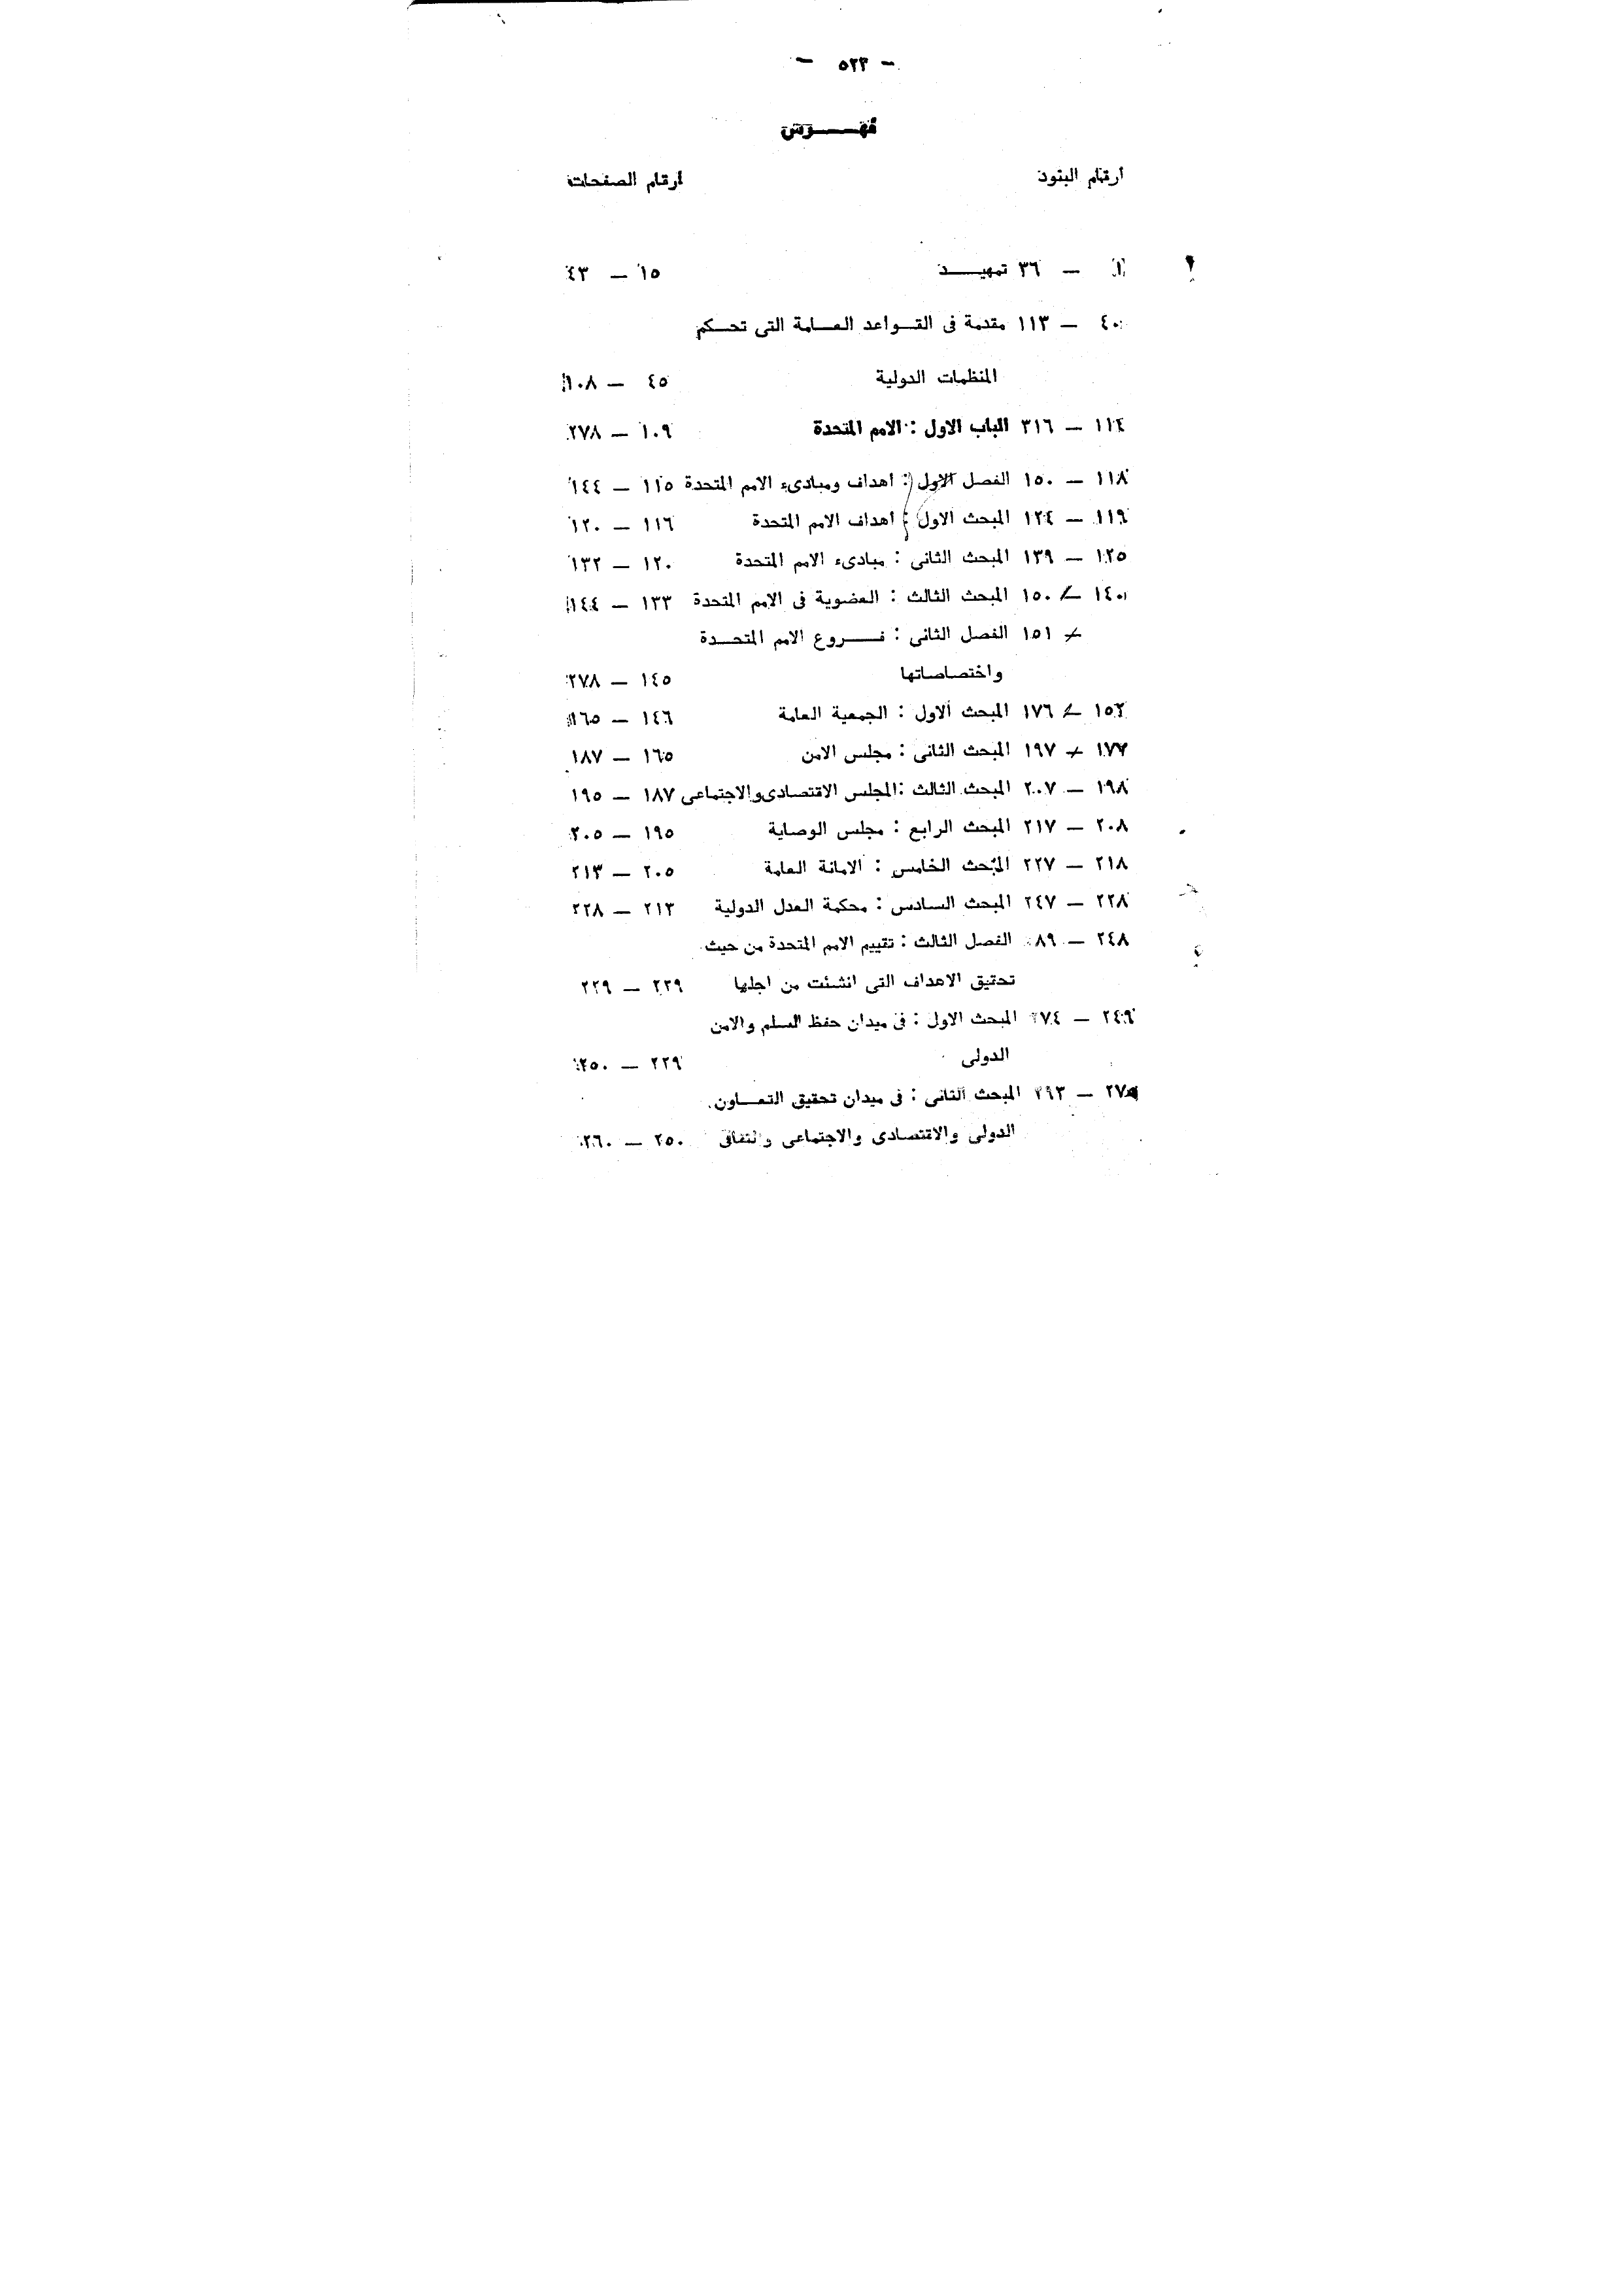 - ٥٢٣ -
فهـــرس
أرقام البنود أرقام الصفحات
١ — ٣٦ تمهيـــد ١٥ — ٤٣
٤٠ — ١١٣ مقدمة فى القـواعد العـامة التى تحـكم
المنظمات الدولية ٤٥ — ١٠٨
١١٤ — ٣١٦ الباب الاول : الامم المتحدة ١٠٩ — ٢٧٨
١١٨ — ١٥٠ الفصل الاول : اهداف ومبادىء الامم المتحدة ١١٥ — ١٤٤
١١٩ — ١٢٤ المبحث الاول : أهداف الامم المتحدة ١١٦ — ١٢٠
١٢٥ — ١٣٩ المبحث الثانى : مبادىء الامم المتحدة ١٢٠ — ١٣٢
١٤٠ — ١٥٠ المبحث الثالث : العضوية فى الامم المتحدة ١٣٣ — ١٤٤
١٥١ الفصل الثانى : فـــروع الامم المتحـدة
واختصاصاتها ١٤٥ — ٢٧٨
١٥٢ — ١٧٦ المبحث الاول : الجمعية العامة ١٤٦ — ١٦٥
١٧٧ — ١٩٧ المبحث الثانى : مجلس الامن ١٦٥ — ١٨٧
١٩٨ — ٢٠٧ المبحث الثالث :المجلس الاقتصادى والاجتماعى ١٨٧ — ١٩٥
٢٠٨ — ٢١٧ المبحث الرابع : مجلس الوصاية ١٩٥ — ٢٠٥
٢١٨ — ٢٢٧ المبحث الخامس : الامانة العامة ٢٠٥ — ٢١٣
٢٢٨ — ٢٤٧ المبحث السادس : محكمة العدل الدولية ٢١٣ — ٢٢٨
٢٤٨ — الفصل الثالث : تقييم الامم المتحدة من حيث
تحقيق الاهداف التى انشئت من اجلها ٢٢٩ — ٢٢٩
٢٤٩ — ٢٧٤ المبحث الاول : فى ميدان حفظ السلم والامن
الدولى ٢٢٩ — ٢٥٠
٢٧٥ — ٢٩٣ المبحث الثانى : فى ميدان تحقيق التعـاون
الدولى والاقتصادى والاجتماعى والثقافى ٢٥٠ — ٢٦٠